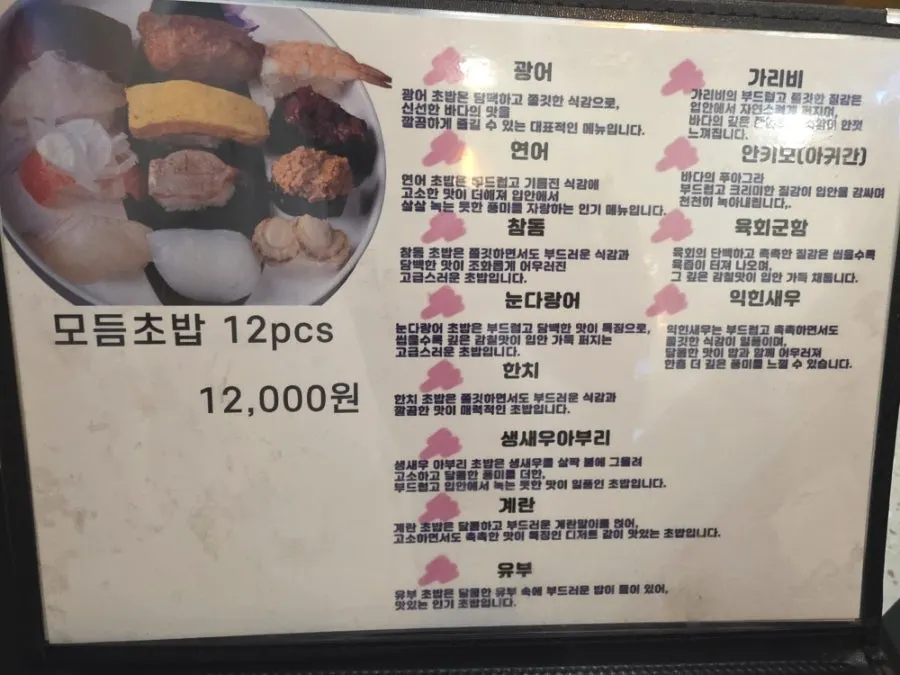 모듬초밥 12pcs
12,000원
광어
광어 초밥은 담백하고 쫄깃한 식감으로,
신선한 바다의 맛을
깔끔하게 즐길 수 있는 대표적인 메뉴입니다.
연어
연어 초밥은 부드럽고 기름진 식감에
고소한 맛이 더해져 입안에서
살살 녹는 듯한 풍미를 자랑하는 인기 메뉴입니다.
참돔
참돔 초밥은 쫄깃하면서도 부드러운 식감과
담백한 맛이 조화롭게 어우러진
고급스러운 초밥입니다.
눈다랑어
눈다랑어 초밥은 부드럽고 담백한 맛이 특징으로,
씹을수록 깊은 감칠맛이 입안 가득 퍼지는
고급스러운 초밥입니다.
한치
한치 초밥은 쫄깃하면서도 부드러운 식감과
깔끔한 맛이 매력적인 초밥입니다.
생새우아부리
생새우 아부리 초밥은 생새우를 살짝 불에 그을려
고소하고 달콤한 풍미를 더한,
부드럽고 입안에서 녹는 듯한 맛이 일품인 초밥입니다.
계란
계란 초밥은 달콤하고 부드러운 계란말이를 얹어,
고소하면서도 촉촉한 맛이 특징인 디저트 같이 맛있는 초밥입니다.
유부
유부 초밥은 달콤한 유부 속에 부드러운 밥이 들어 있어,
맛있는 인기 초밥입니다.
가리비
가리비의 부드럽고 쫄깃한 질감은
입안에서 자연스럽게 퍼지며,
바다의 깊은 한껏
느껴집니다.
안키모(아귀간)
바다의 푸아그라
부드럽고 크리미한 질감이 입안을 감싸며
천천히 녹아내립니다,.
육회군함
육회의 단백하고 촉촉한 질감은 씹을수록
육즙이 터져 나오며,
그 깊은 감칠맛이 입안 가득 채웁니다.
익힌새우
익힌새우는 부드럽고 촉촉하면서도
쫄깃한 식감이 일품이며,
달콤한 맛이 밥과 함께 어우러져
한층 더 깊은 풍미를 느낄 수 있습니다.